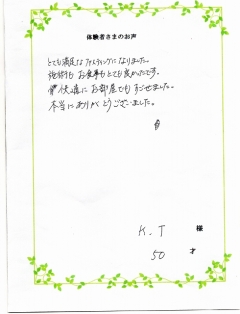 体験者さまのお声
とても満足なファスティングになりました。
施術も お食事もとても良かったです。
快適に お部屋でも すごせました。
本当に ありがとうございました。
K.T 様
50 才